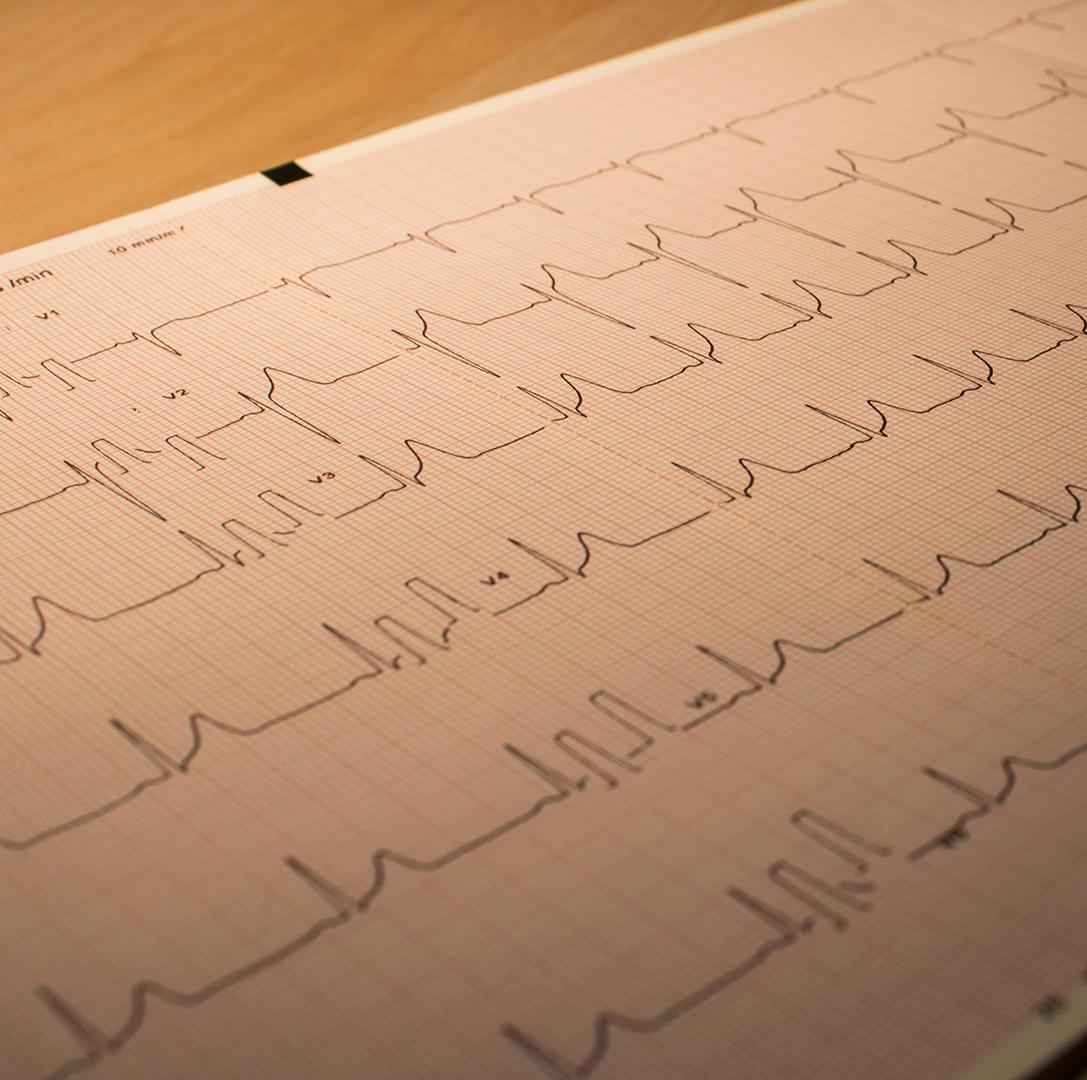 10 mm/m
/min
V1
V2
V3
V4
V5